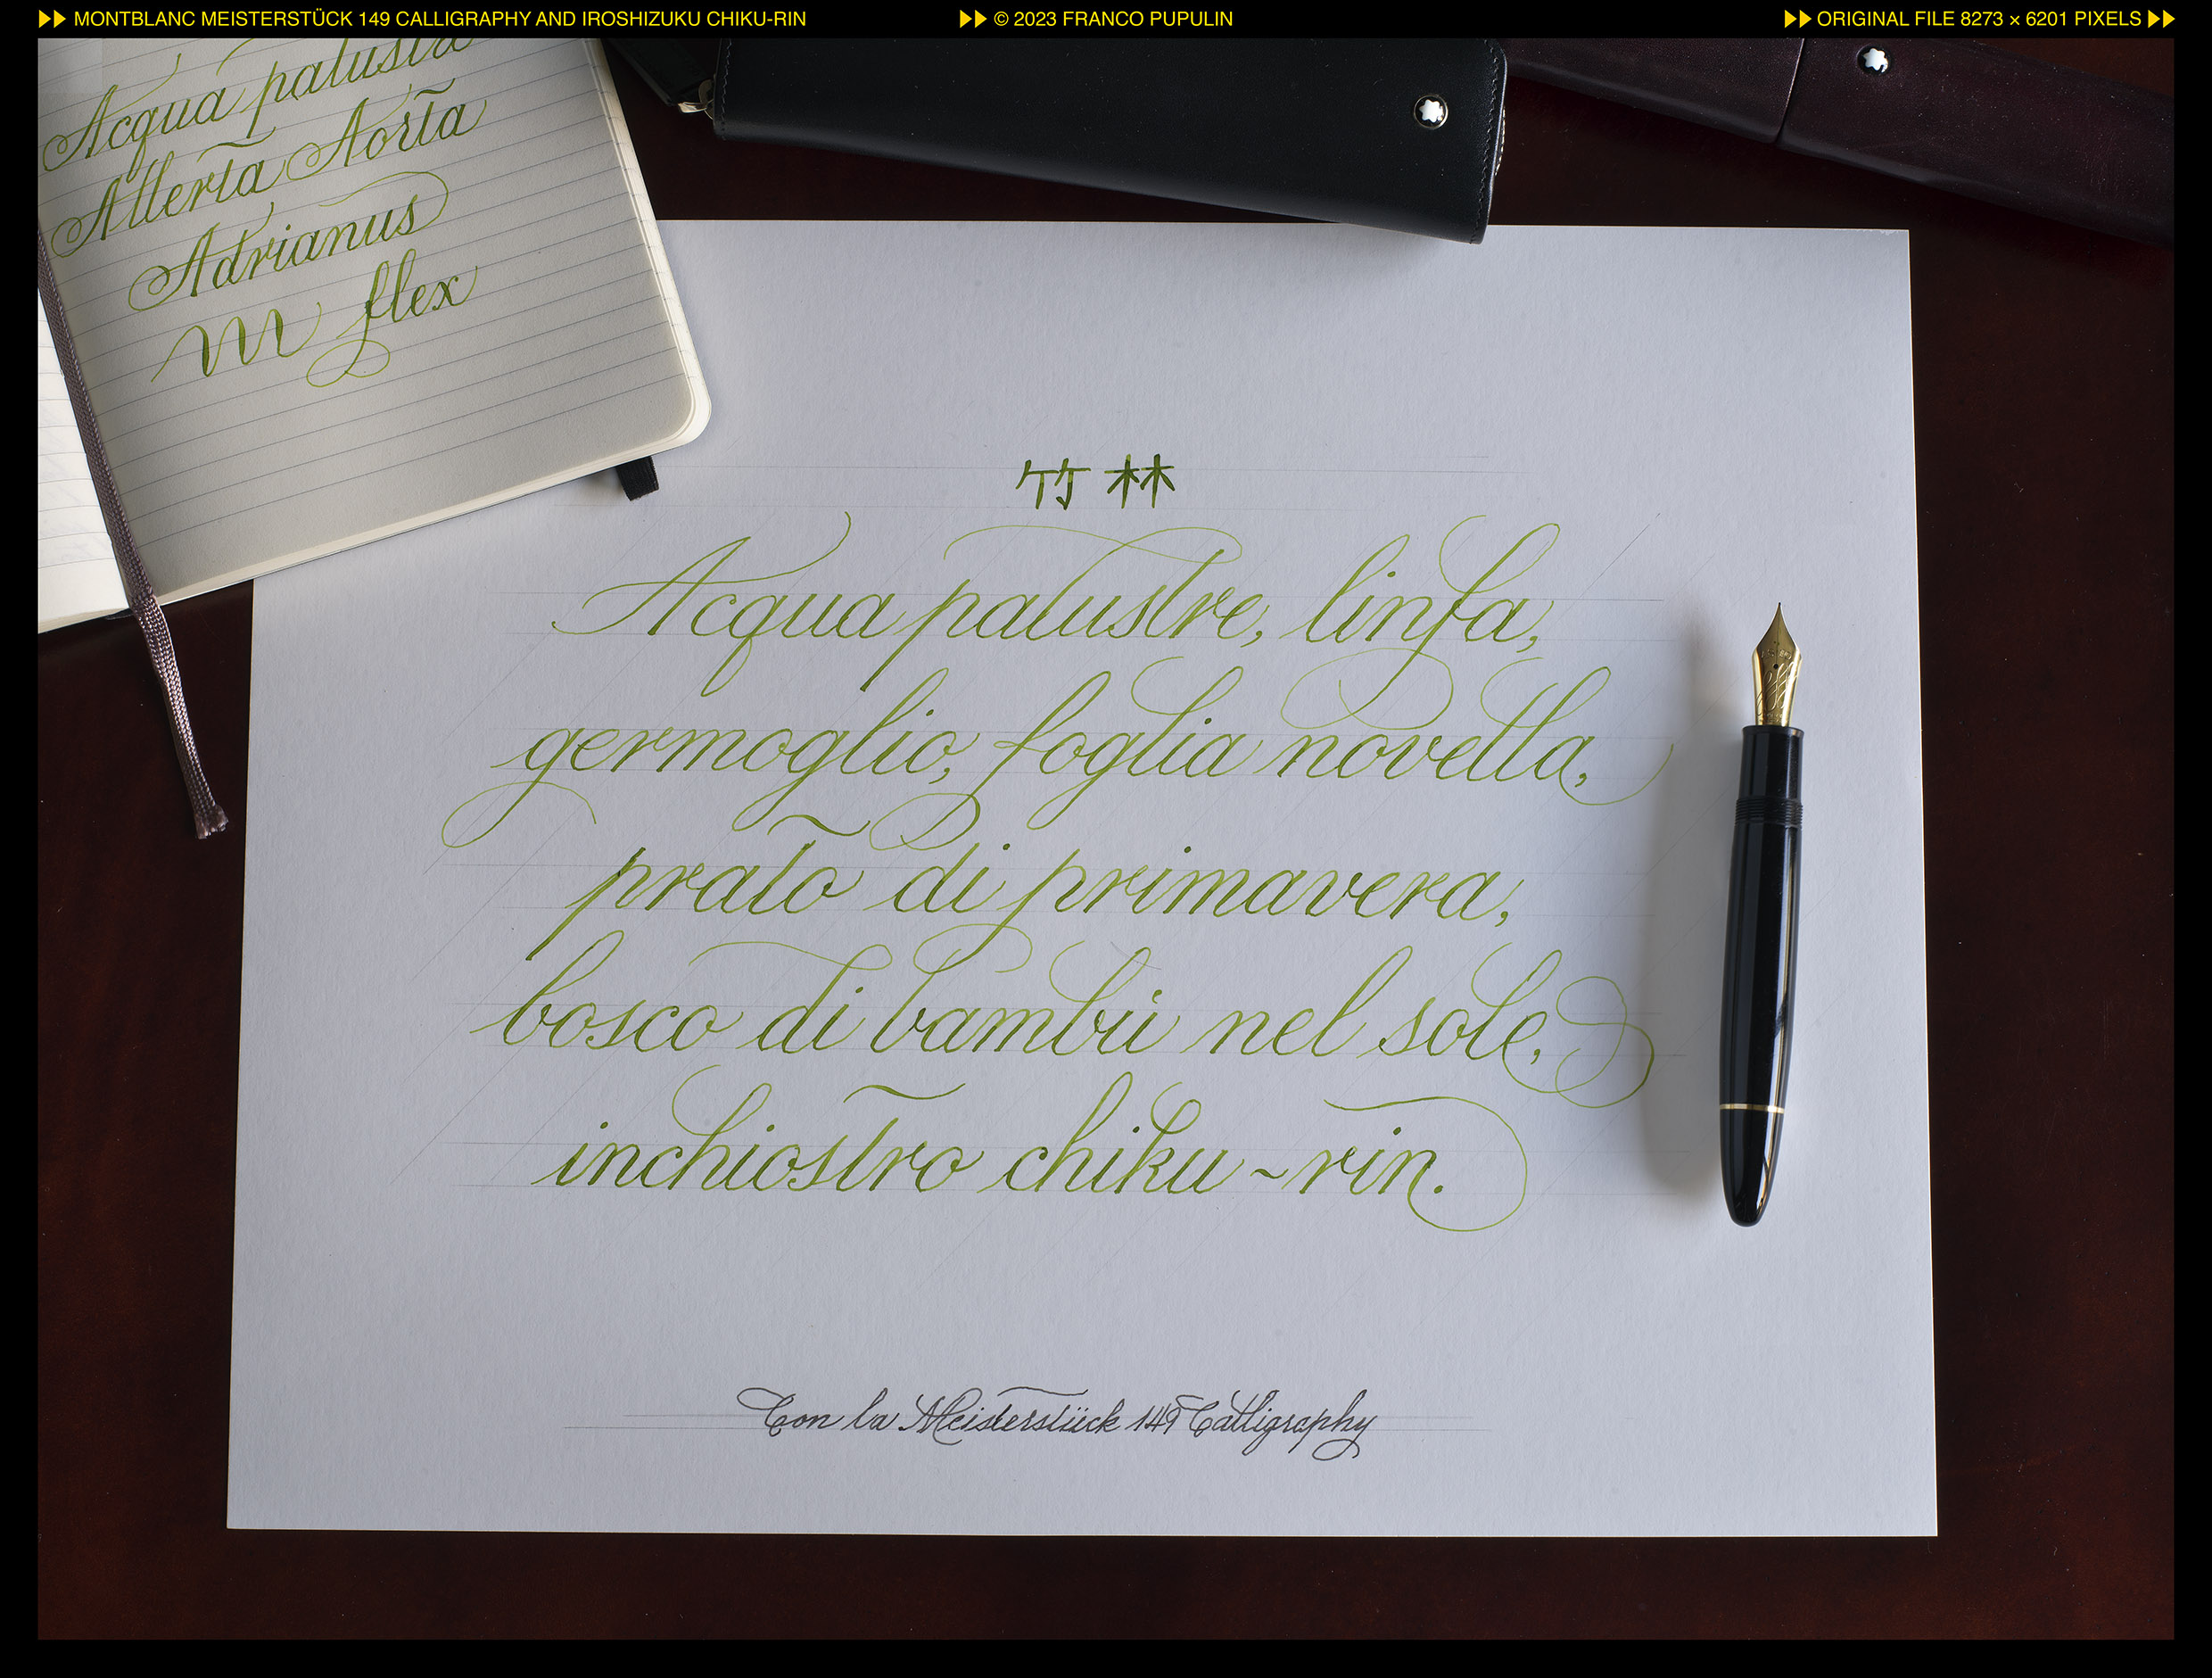 MONTBLANC MEISTERSTÜCK 149 CALLIGRAPHY AND IROSHIZUKU CHIKU-RIN
© 2023 FRANCO PUPULIN
ORIGINAL FILE 8273 × 6201 PIXELS
Acqua palustre
Allerta Aorta
Adrianus
flex
竹林
Acqua palustre, linfa,
germoglio, foglia novella,
prato di primavera,
bosco di bambù nel sole,
inchiostro chiku-rin.
Con la Meisterstück 149 Calligraphy